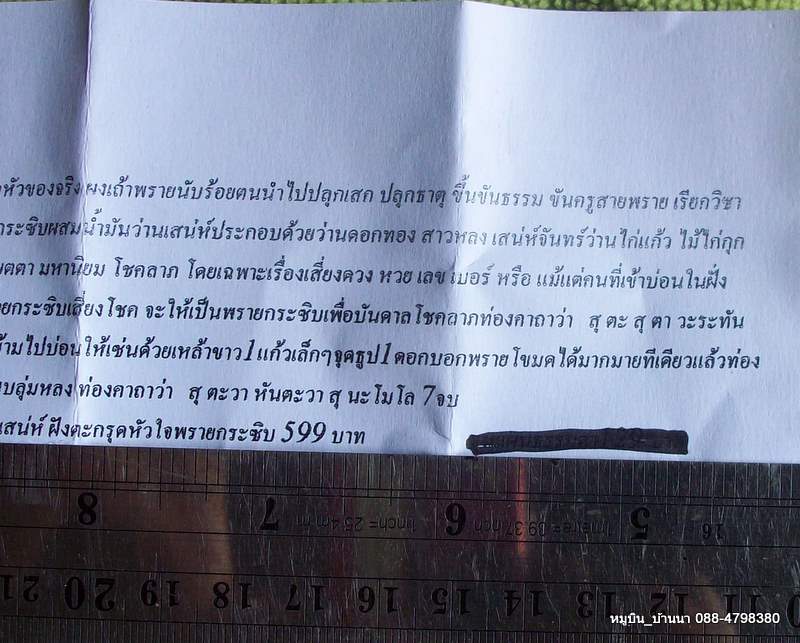 หัวของจริง ผงเถ้าพรายนับร้อยตนนำไปปลุกเสก ปลุกธาตุ ขึ้นขันธรรม ขันครูสายพราย เรียกวิชา
กระซิบผสมน้ำมันว่านเสน่ห์ประกอบด้วยว่านดอกทอง สาวหลง เสน่ห์จันทร์ว่านไก่แก้ว ไม้ไก่กุก
มตตา มหานิยม โชคลาภ โดยเฉพาะเรื่องเสี่ยงดวง หวย เลข เบอร์ หรือ แม้แต่คนที่เข้าบ่อนในฝั่ง
ยกระซิบเสี่ยงโชค จะให้เป็นพรายกระซิบเพื่อบันดาลโชคลาภท่องคาถาว่า สุ ตะ สุ ตา วะระทัน
ข้ามไปบ่อนให้เซ่นด้วยเหล้าขาว 1 แก้วเล็กๆจุดธูป 1 ดอกบอกพรายโขมดได้มากมายทีเดียวแล้วท่อง
บลุ่มหลง ท่องคาถาว่า สุ ตะวา หันตะวา สุ นะโมโล 7 จบ
เสน่ห์ ฝังตะกรุดหัวใจพรายกระซิบ 599 บาท
8 7 1inch = 25.4mm 6 1metre = 39.37inch 5 16
21 20 19 18 17 16 15 14 13 12 11
หมูบิน_บ้านนา 088-4798380